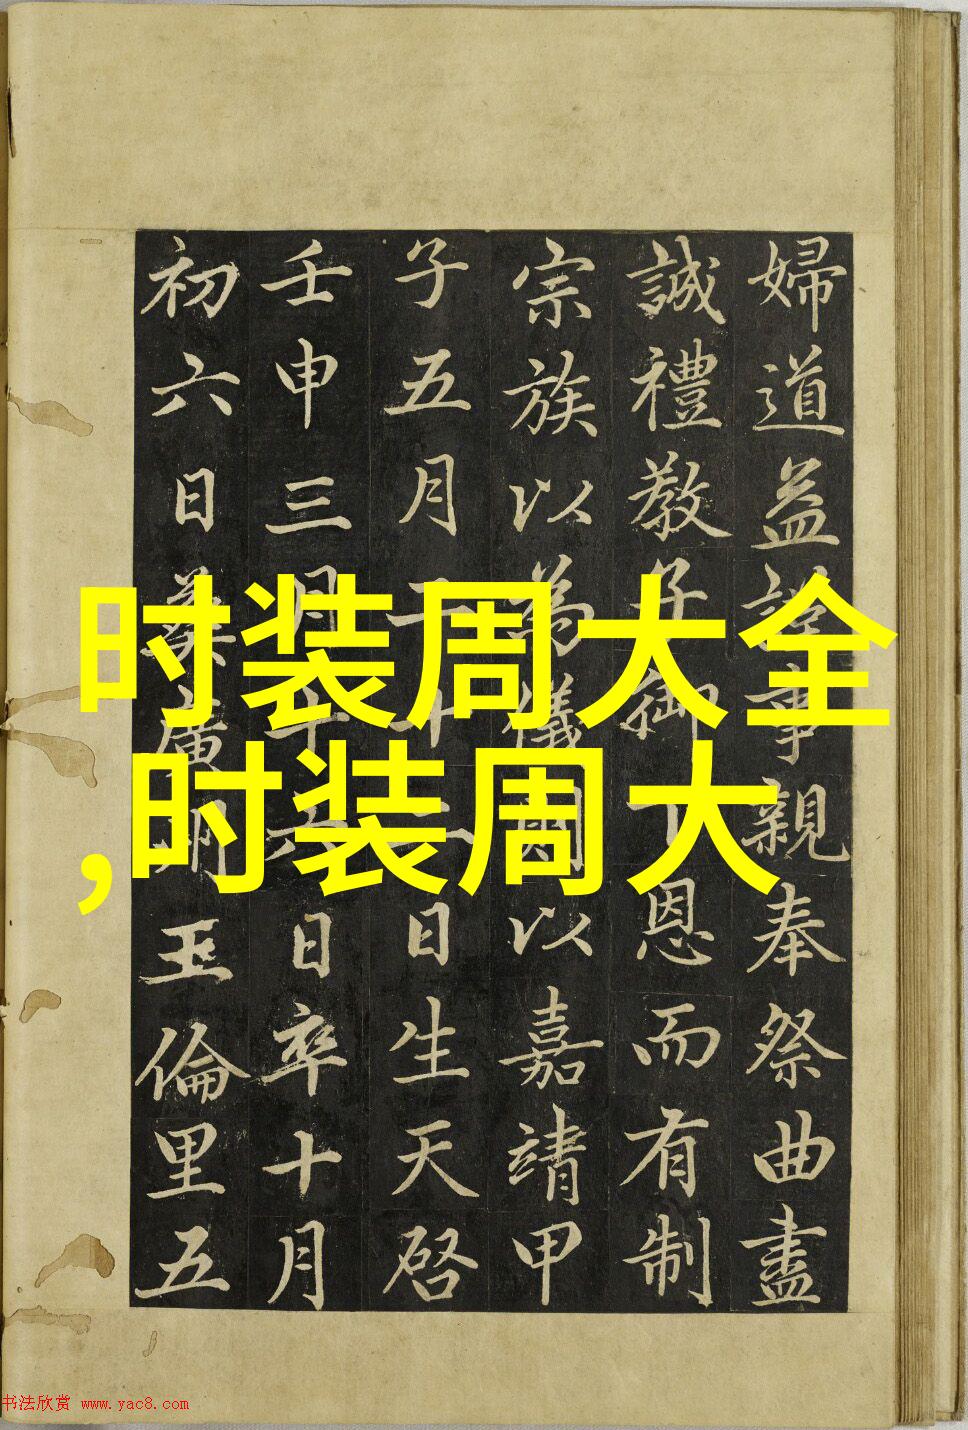 时装周大全
,时装周大
婦道益謹事親奉祭曲盡
誠禮教子御下恩而有制
宗族以為儀以嘉靖甲
子五月二十日生天啓
壬申三月十六日卒十月
初六日葬廣玉倫里五
书法欣赏 www.yac8.com